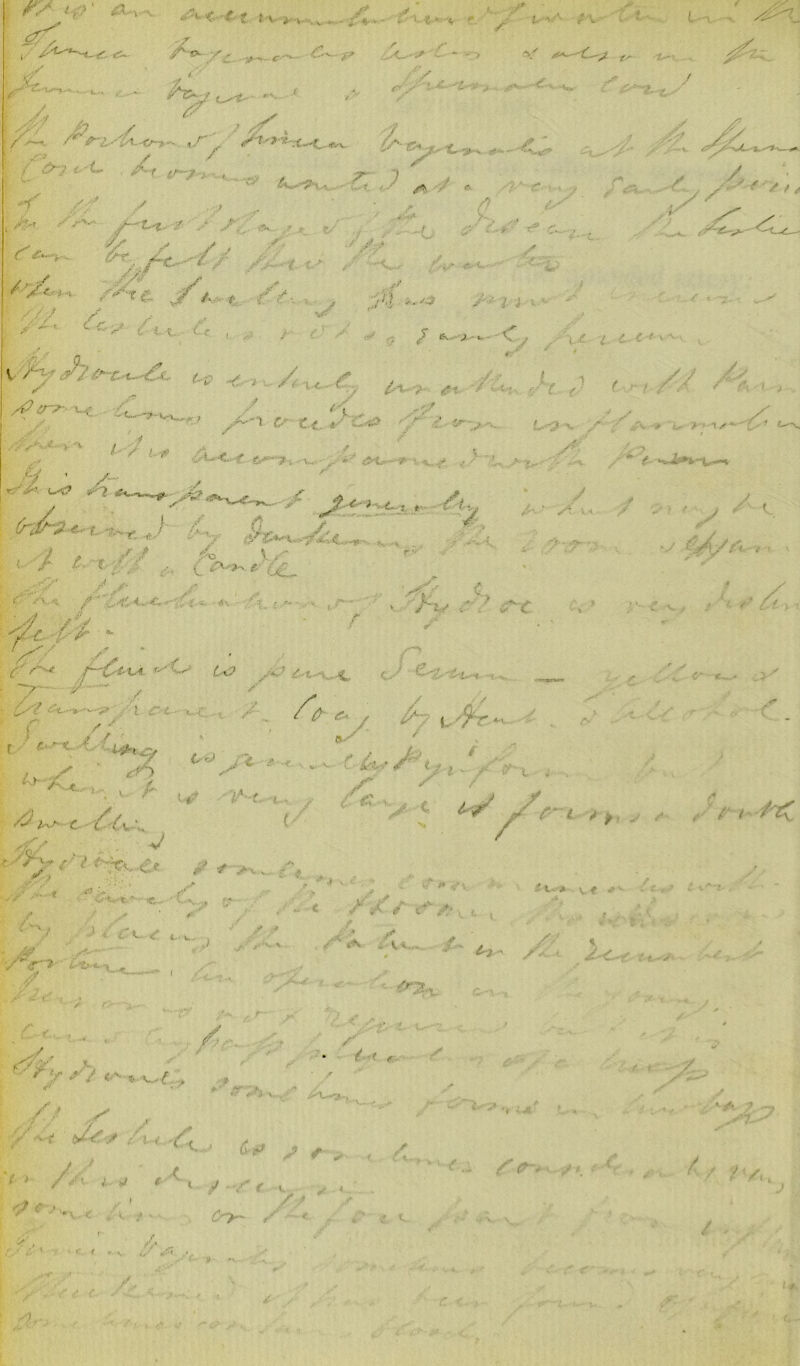 this an accumulation of water in the
Tunica Vaginalis testis & also in the
Tunica Vaginal s Spermatic Cord
the Portion of Tunica Vaginalis at the Sperma
Cord becomes united at a very early perio
In the first stage of the disease the testic
can be felt thro the water
when the Swelling has much increase
the testicle is not so easily perceiv
Hydrocele is entirely unattended with Pain
sometimes procedes from inflammation
then it is accompanied with Pain
this transparent generally which may be
observed by darkening the room & exam
it with a Candle
The fluctuation of Hydroc is very distin
felt.
The fluid is pure Serum — yellow &
transparent. Coag by Heat. & Alcohol.
Swelling is generally Pyriform but
when it is very large it forms a double
swelling
Hydrocele sometimes communicates with
the cavity of the Abdomen this
by placing the Patient in the recumbent
Posture. An operation in the young
person is not required but it is
cured by application of a truss
Hydroceles sometimes forms in two bags
The Testicle is sometimes considerably
in this disease
sometimes on the fore part from inflam
Tunica Vaginalis sometimes becomes very
thickened it has been found
sometimes contains blood.